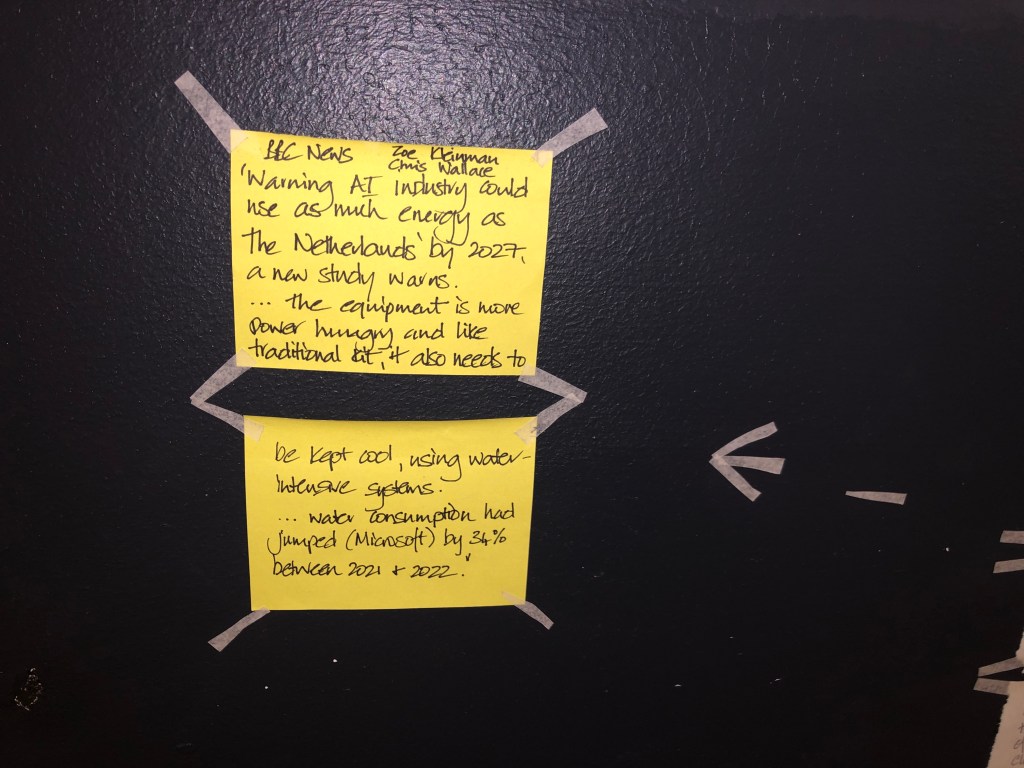 BBC News Zoe Kleinman
Chris Wallace
'Warning AI industry could
use as much energy as
the Netherlands' by 2027,
a new study warns.
... the equipment is more
power hungry and like
traditional kit, it also needs to
be kept cool, using water-
intensive systems.
... water consumption had
jumped (Microsoft) by 34%
between 2021 + 2022."